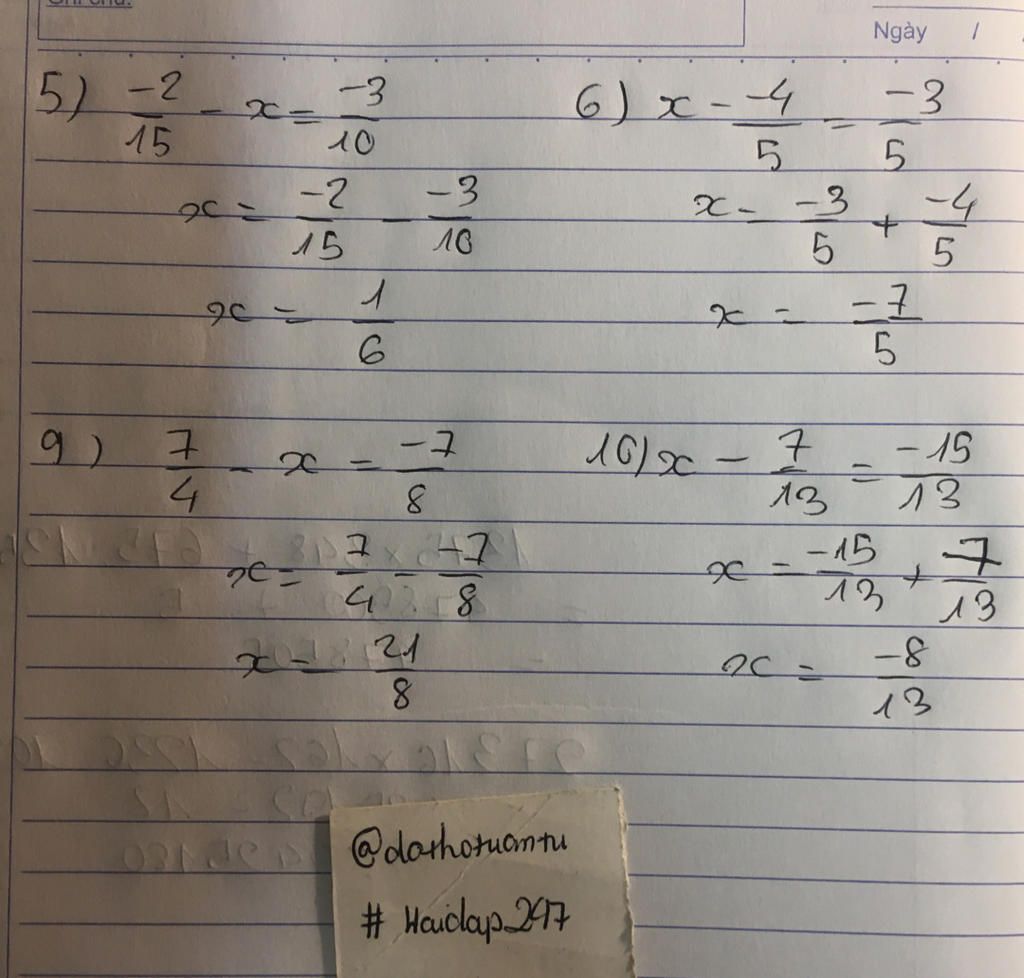 Ghi chú:
Ngày / .
5) -2/15 - x = -3/10
x = -2/15 - -3/10
x = 1/6
6) x - -4/5 = -3/5
x = -3/5 + -4/5
x = -7/5
9) 7/4 - x = -7/8
x = 7/4 - -7/8
x = 21/8
10) x - 7/13 = -15/13
x = -15/13 + 7/13
x = -8/13
@dothotuantu
# Hoidap247